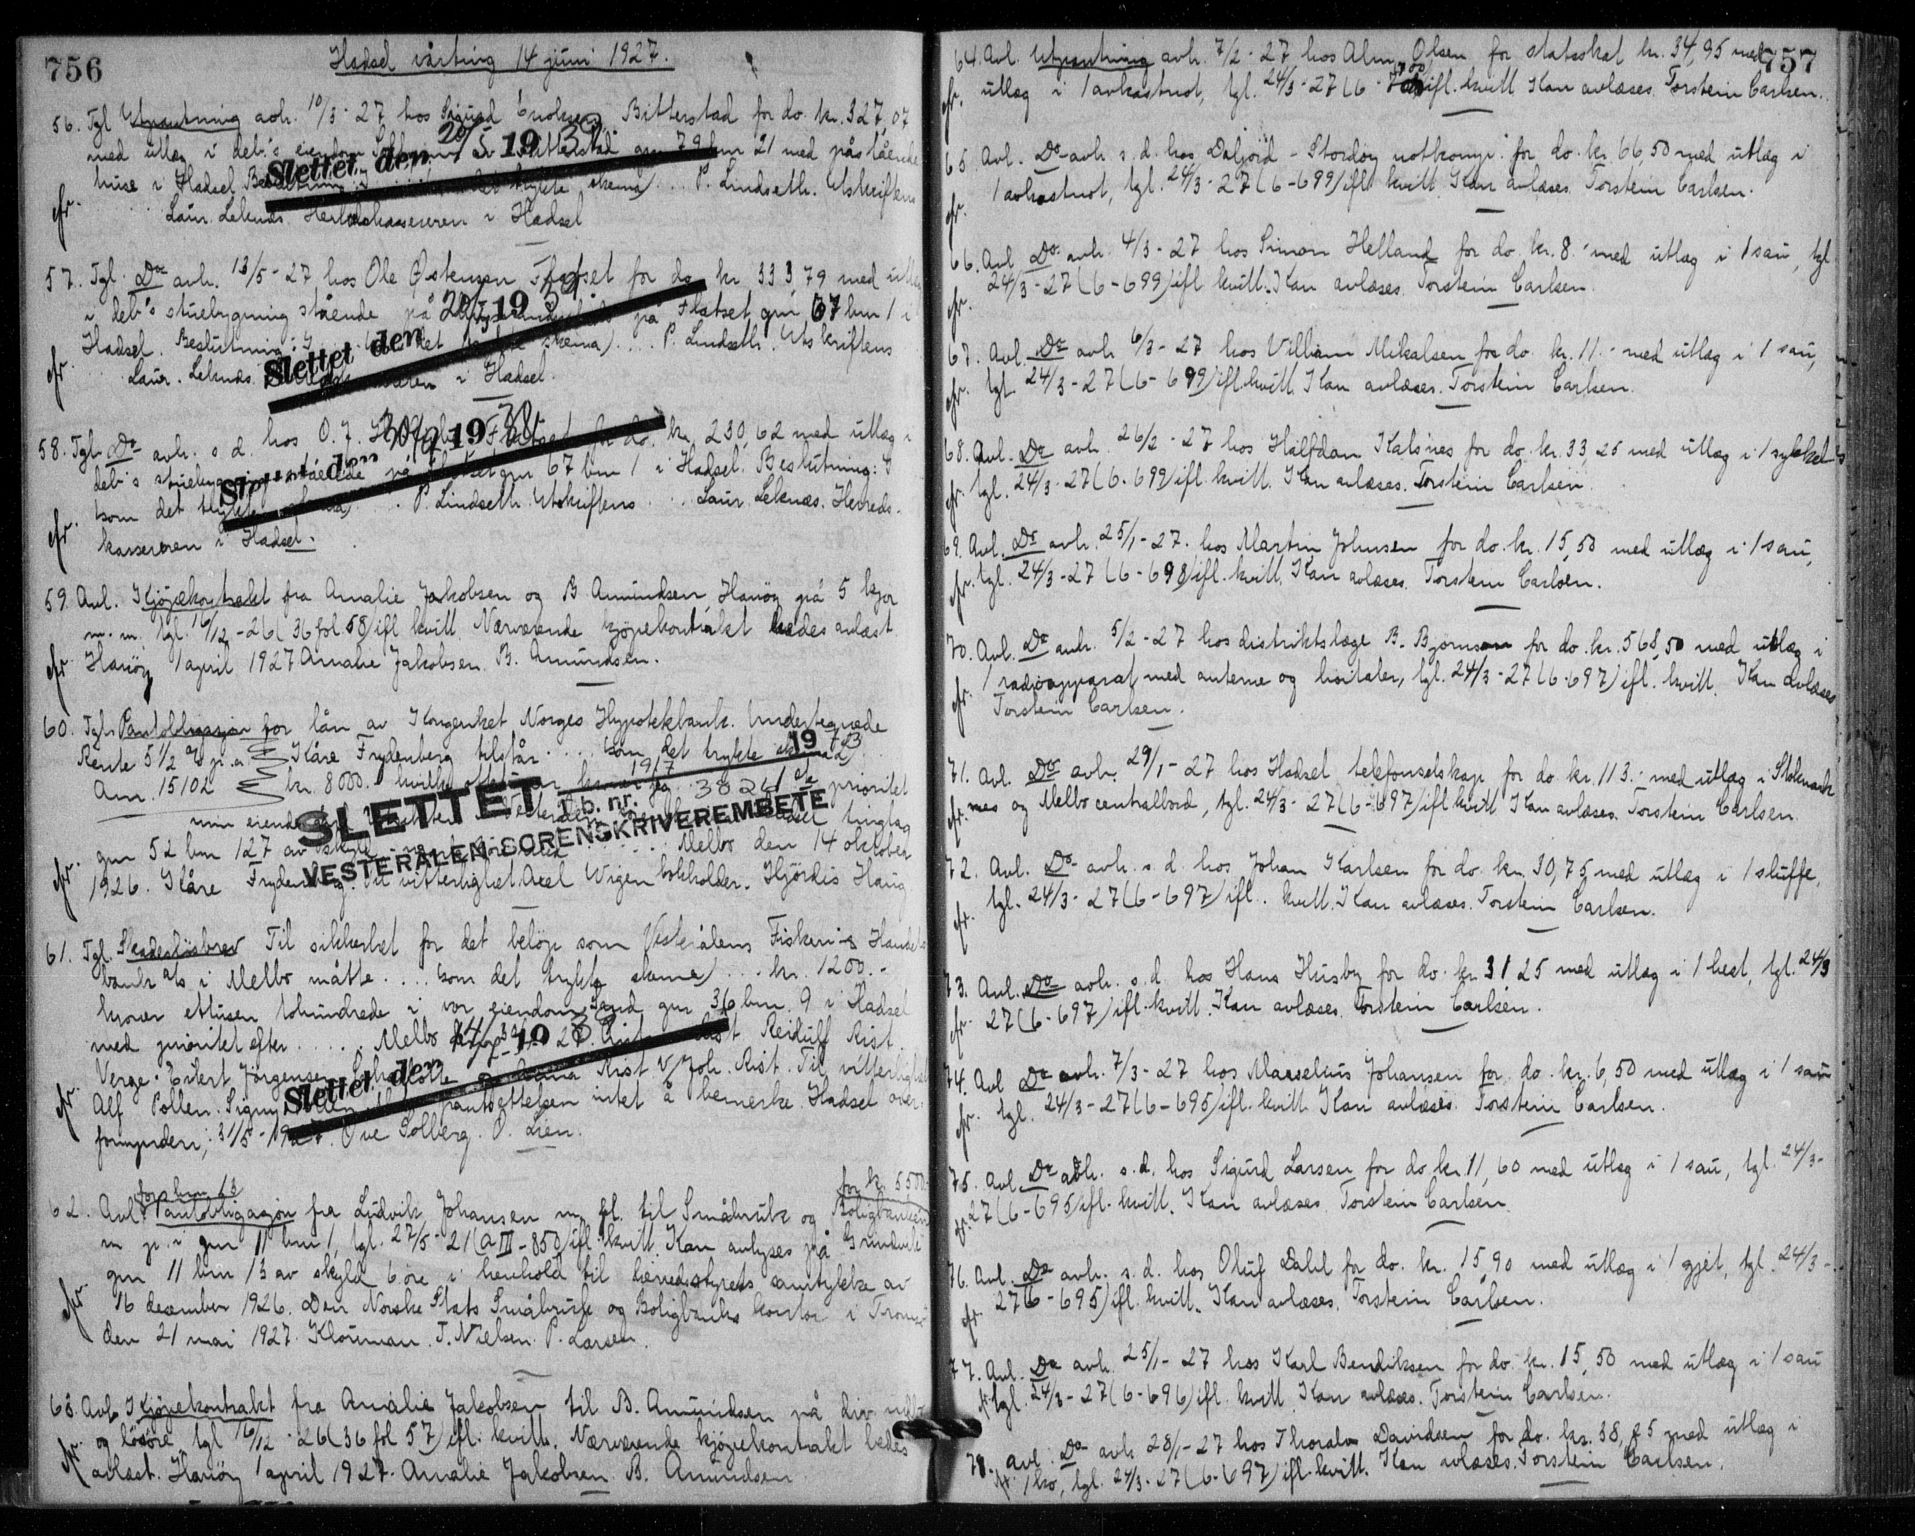 756
Hadsel vårting 14 juni 1927.
56. Tgl Utpantning avh. 10/3-27 hos Sigurd Enoksen, Bitterstad for do. kr. 327,07
med utlæg i deb's eiendom av Bitterstad gnr 79 bnr 21 med påstående
huse i Hadsel. Beslutning: trykte skema) ... P. Lindseth. Utskriftens
efr. Laur. Leknæs Herredskassereren i Hadsel
Slettet den 20/5 1939.
57. Tgl. Do avh. 13/5-27 hos Ole Østensen Flatset for do kr. 333 79 med utlæg
i deb's stuebygning stående på Flatset gnr 67 bnr 1 i
Hadsel. Beslutning: skema) ... P. Lindseth. Utskriftens
efr Laur. Leknæs. i Hadsel.
Slettet den 19
58. Tgl. Do avh. s d. hos O. J. Flatset for do. kr. 230,62 med utlæg i
deb's stuebygning stående på Flatset gnr 67 bnr 1 i Hadsel. Beslutning: S
som det trykte skema) ... P. Lindseth. Utskriftens .... Laur. Leknæs. Herreds-
efr. kassereren i Hadsel.
Slettet den 19
59. Avl. Kjøpekontrakt fra Amalie Jakobsen og B Amundsen, Hanøy på 5 kjør
m. m. tgl. 16/12-26 (36 fol. 58) ifl kvitt. Nærværende kjøpekontrakt bedes avlæst.
efr Hanøy 1 april 1927 Amalie Jakobsen. B. Amundsen.
60. Tgl. Pantobligasjon for lån av Kongeriket Norges Hypotekbank. Undertegnede
Rente 5 1/2 % p. a. Kåre Frydenberg tilstår .... som det trykte skema)
Am. 15102 kr. 8000.- hvilke prioritet
min eiendom Hadsel tinglag
gnr 52 bnr 127 av skyld Melbo den 14 oktober
efr. 1926. Kåre Frydenberg. Til vitterlighet: Axel Wigen bokholder. Hjördis Haug
SLETTET
19
T.b. nr.
VESTERÅLEN SORENSKRIVEREMBETE
61. Tgl. Skadesløsbrev Til sikkerhet for det beløp som Vesterålens Fiskeri- & Handels-
bank A/s i Melbo måtte .... som det trykte skema) ... kr. 1200.-
kroner ettusen tohundrede i vor eiendom Sand gnr 36 bnr 9 i Hadsel
med prioritet efter ..... Melbo Rist Reidulf Rist.
Verge: Eilert Jørgensen. Rist v/ Joh. Rist. Til vitterlighet
efr. Alf Pollen. Signy pantsettelsen intet å bemerke. Hadsel over-
formynderi, 31/5-1927. Ove Solberg. O. Lien.
Slettet den 19
for bnr 13 for kr 5500
62. Avl. Pantobligasjon fra Ludvik Johansen m. fl. til Småbruk og Boligbanken
m. p. i gnr 11 bnr 1, tgl. 27/5-21 (a III-850) ifl. kvitt. Kan avlyses på
gnr 11 bnr 13 av skyld 6 øre i henhold til herredsstyrets samtykke av
efr 16 december 1926. Den Norske Stats Småbruk og Boligbanks kontor i Tromsø
den 21 mai 1927. Klouman. T. Nielsen. P. Larsen.
63. Avl. Kjøpekontrakt fra Amalie Jakobsen til B. Amundsen på div. indbo
og løsøre, tgl 16/12-26 (36 fol 57) ifl. kvitt. Nærværende kjøpekontrakt bedes
efr. avlæst. Hanøy 1 april 1927. Amalie Jakobsen B. Amundsen
757
64. Avl. Utpantning avh. 7/2-27 hos Alm. Olsen for statsskat kr. 34,95 med
efr. utlæg i 1 avkastnot, tgl. 24/3-27 (6-700) ifl. kvitt. Kan avlæses. Torstein Carlsen.
65. Avl. Do avh. s. d. hos Daljord - Stordøy notkomp. for do. kr. 66,50 med utlæg i
efr. 1 avkastnot, tgl. 24/3-27 (6-699) ifl. kvitt. Kan avlæses. Torstein Carlsen.
66. Avl. Do avh. 4/3-27 hos Simon Helland for do. kr. 8.- med utlæg i 1 sau, tgl.
efr. 24/3-27 (6-699) ifl. kvitt. Kan avlæses. Torstein Carlsen.
67. Avl. Do avh. 6/3-27 hos Villiam Mikalsen for do. kr. 11.- med utlæg i 1 sau,
efr. tgl. 24/3-27 (6-699) ifl. kvitt. Kan avlæses. Torstein Carlsen.
68. Avl. Do avh. 26/2-27 hos Halfdan Kalsnes for do. kr. 33,25 med utlæg i 1 sykkel
efr. tgl. 24/3-27 (6-699) ifl. kvitt. Kan avlæses. Torstein Carlsen.
69. Avl. Do avh. 25/1-27. hos Martin Johnsen for do. kr. 15,50 med utlæg i 1 sau,
efr. tgl. 24/3-27 (6-698) ifl. kvitt. Kan avlæses. Torstein Carlsen.
70. Avl. Do avh. 5/2-27 hos distriktslæge B. Bjørnson for do. kr. 568,50 med utlæg i
efr. 1 radioapparat med anterne og hoitaler, tgl. 24/3-27 (6-697) ifl. kvitt. Kan avlæses
Torstein Carlsen.
71. Avl. Do avh. 29/1-27 hos Hadsel telefonselskap for do. kr. 113.- med utlæg i Stokmark
efr. nes og Melbo centralbord, tgl. 24/3-27 (6-697) ifl. kvitt. Kan avlæses. Torstein Carlsen.
72. Avl. Do avh. s. d. hos Johan Karlsen for do. kr. 30,75 med utlæg i 1 sluffe,
efr. tgl. 24/3-27 (6-697) ifl. kvitt. Kan avlæses. Torstein Carlsen.
73. Avl. Do avh. s. d. hos Hans Husby for do. kr. 31 25 med utlæg i 1 hest, tgl. 24/3
efr. 27 (6-697) ifl. kvitt. Kan avlæses. Torstein Carlsen.
74. Avl Do avh. 7/3-27 hos Marselius Johansen for do. kr. 6,50 med utlæg i 1 sau
efr. tgl. 24/3-27 (6-695) ifl. kvitt. Kan avlæses. Torstein Carlsen.
75. Avl. Do avh. s. d. hos Sigurd Larsen for do. kr. 11,60 med utlæg i 1 sau, tgl. 24/3-
efr. 27 (6-695) ifl. kvitt. Kan avlæses. Torstein Carlsen.
76. Avl. Do avh. s. d. hos Oluf Dahl for do. kr. 15,90 med utlæg i 1 gjet, tgl. 24/3-
efr. 27 (6-695) ifl. kvitt. Kan avlæses. Torstein Carlsen.
77. Avl. Do avh. 25/1-27 hos Karl Bendiksen for do. kr. 15,50 med utlæg i 1 sau
efr. tgl. 24/3-27 (6-696) ifl. kvitt. Kan avlæses. Torstein Carlsen.
78. avl. Do avh. 28/1-27 hos Thoralv Davidsen for do. kr. 38, 25 med utlæg i
efr. 1 ko, tgl. 24/3-27 (6-697) ifl. kvitt. Kan avlæses. Torstein Carlsen.